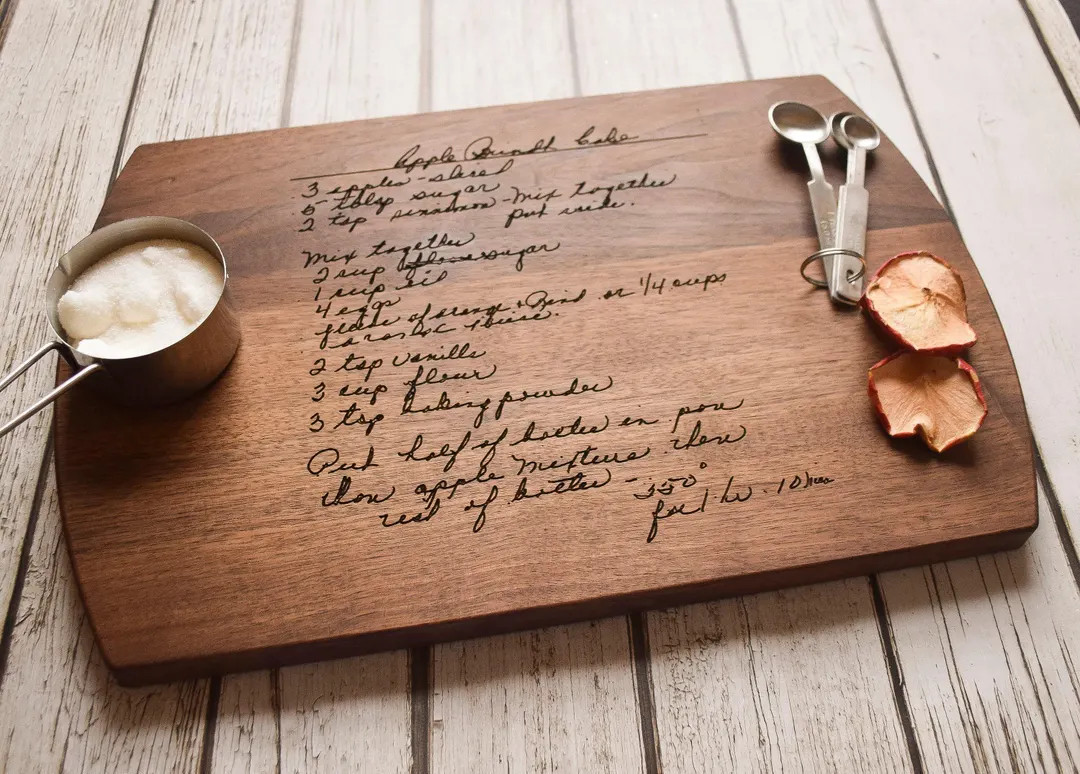 Apple Bundt Cake
3 apples - sliced
5 tblsp sugar
2 tsp cinnamon - Mix together
put aside.
Mix together
2 cup sugar
1 cup oil
4 eggs
of orange + Rind or 1/4 cups
orange juice.
2 tsp vanilla
3 cup flour
3 tsp baking powder
Put half of batter in pan
then apple mixture then
rest of batter - 350°
for 1 hr. 10